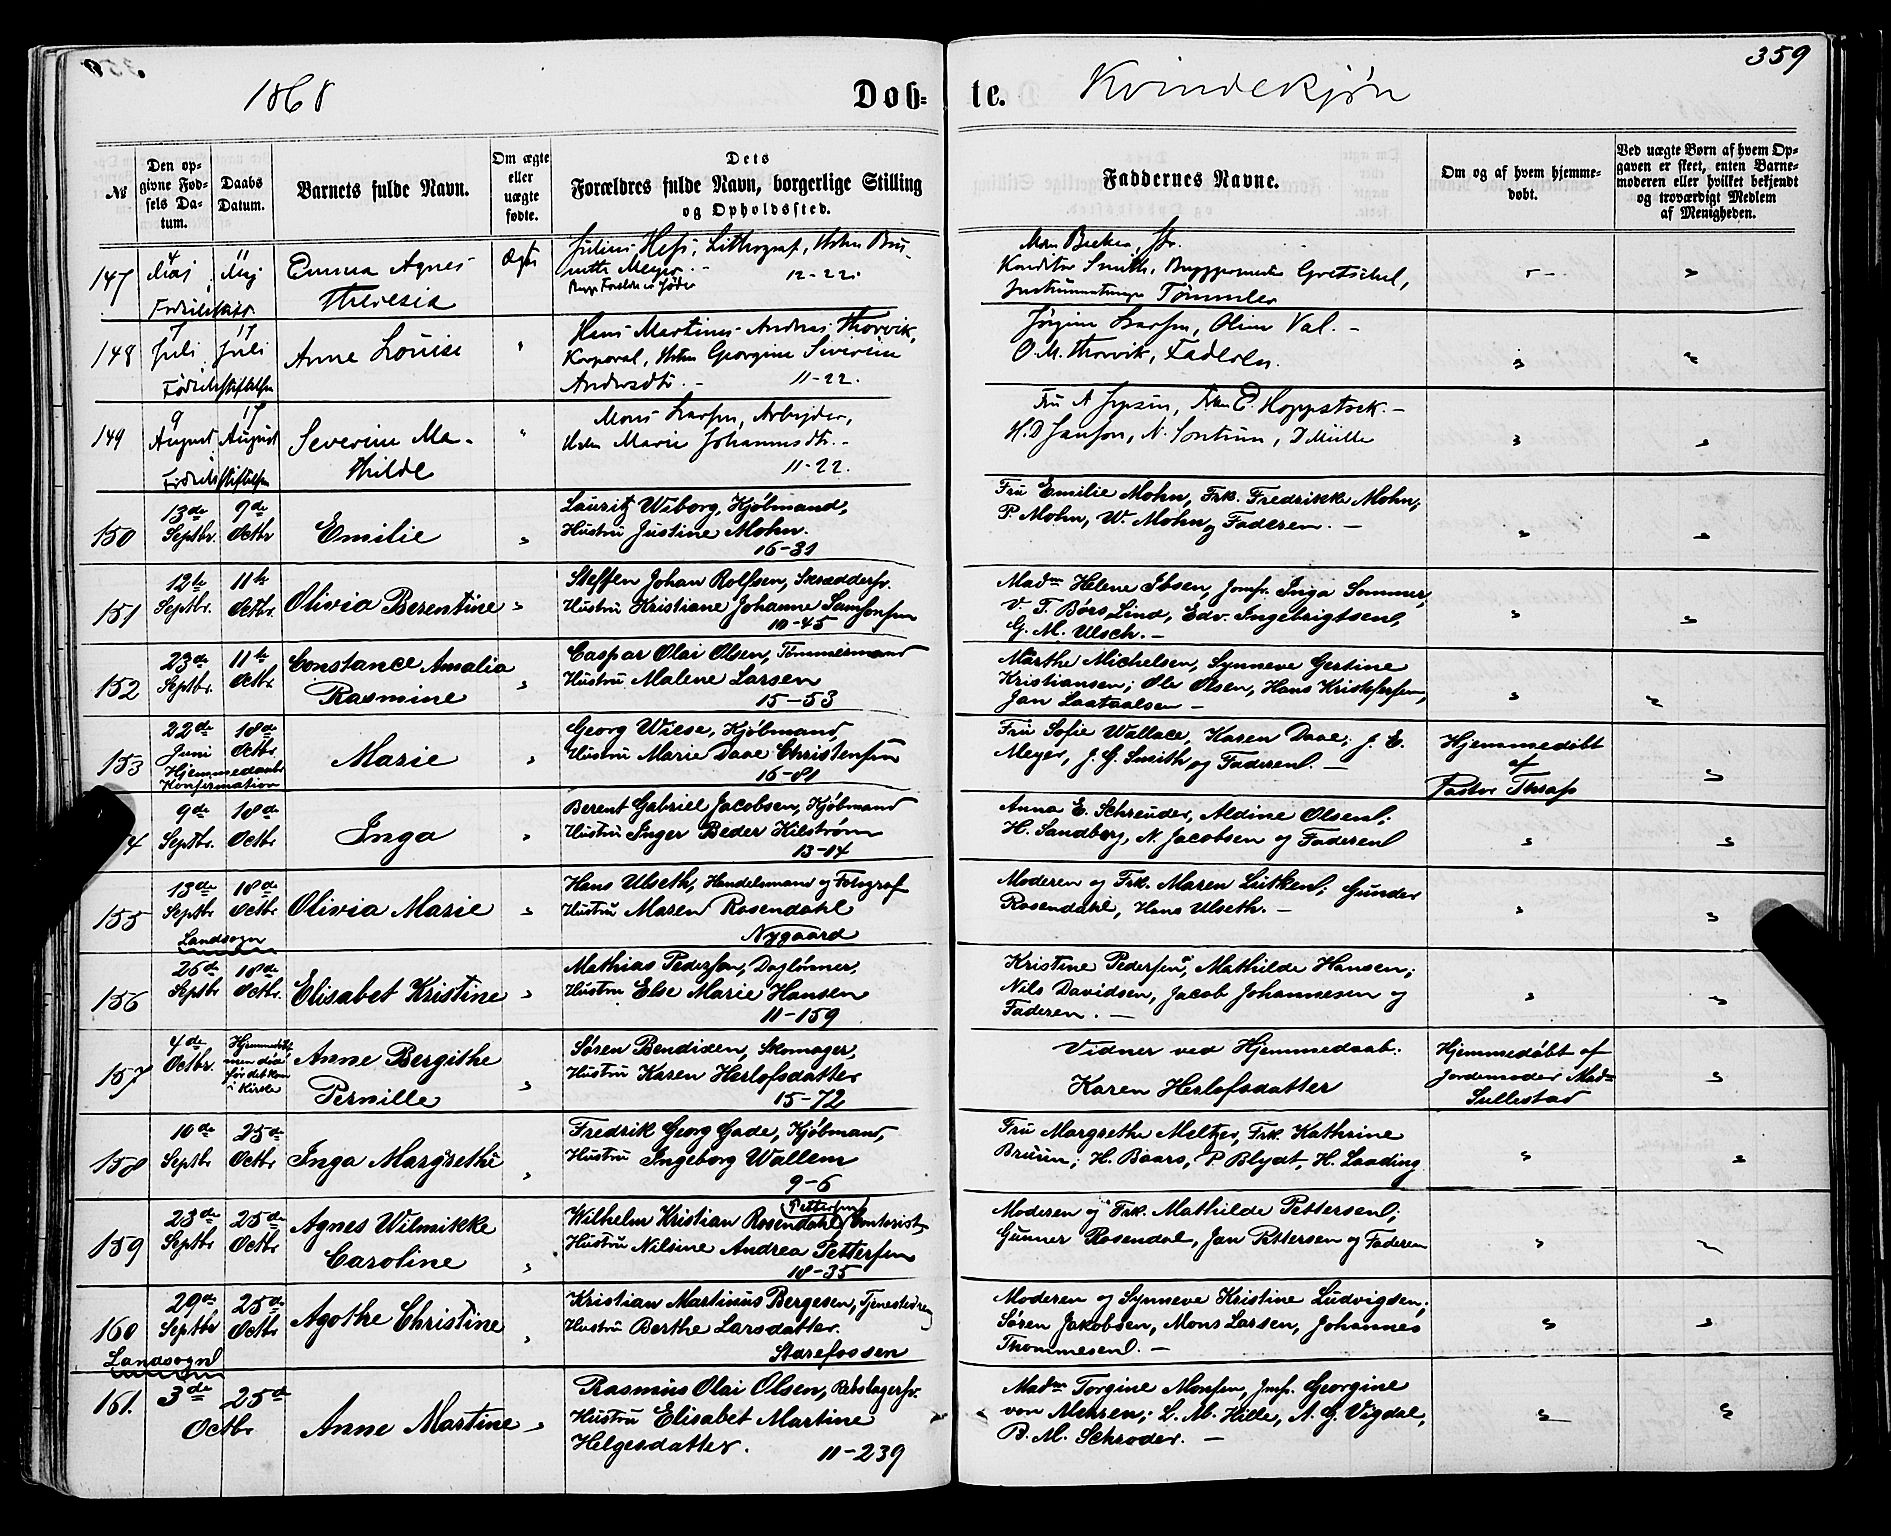 359
1868
Døb=
te.
Kvindekjøn
No
Den op-
givne Fød-
sels Da-
tum.
Daabs
Datum.
Barnets fulde Navn.
Om ægte
eller
uægte
fødte.
Dets
Forældres fulde Navn, borgerlige Stilling
og Opholdssted.
Faddernes Navne.
Om og af hvem hjemme-
døbt.
Ved uægte Børn af hvem Op-
gaven er skeet, enten Barne-
moderen eller hvilket bekjendt
og troværdigt Medlem
af Menigheden.
147
4 Maj
11 Maj
Emma Agnes
Theresia
Ægte
Julius Hess, Lithograf,
Meyer.
12-22.
Konditor Smith, Gretschel,
Tømmler
148
7 Juli
17 Juli
Fødselsstiftelsen
Anne Louise
Hans Martinus Andreas Thorvik,
Korporal, Georgine Severine
Andersdtr. - 11-22.
Jørgine Larsen, Oline Val. -
O. M. Thorvik, Faderen.
149
9 August
17 August
Fødselsstiftelsen
Severine Ma-
thilde
Mons Larsen, Arbejder,
Marie Johannesdtr. -
11-22.
Fru A Jepsen, E. Hoppstock. -
H. D Janson, N. Sontum, D Müller
150
13de Septbr.
9de Octbr
Emilie
Lauritz Wiborg, Kjøbmand,
Hustru Justine Mohn.
16-31
Fru Emilie Mohn, Frk. Fredrikke Mohn,
P. Mohn, W. Mohn og Faderen. -
151
12te Septbr.
11te Octbr.
Olivia Berentine
Steffen Johan Rolfsen, Skræddersv.
Hustru Kristiane Johanne Samsonsen
10-45
Madm Helene Ibsen, Jomfr. Inga Sommer,
V. F. Børs Lind, Edv. Ingebrigtsen,
G. M. Ulsch. -
152
23de Septbr.
11te Octbr.
Constance Amalia
Rasmine
Caspar Olai Olsen, Tømmermand
Hustru Malene Larsen
15-53
Marthe Michelsen, Synneve Gertine
Kristiansen; Ole Olsen, Hans Kristofersen,
Jan Laataalsen -
153
22de Juni
18de Octbr
Hjemmedaabs
Konfirmation
Marie
Georg Wiese, Kjøbmand,
Hustru Marie Daae Christensen
16-81
Fru Sofie Wallace, Karen Daae; J. E.
Meyer, J. G. Smith og Faderen. -
Hjemmedøbt
af
Pastor Thrap
4
9de Septbr.
18de Octbr
Inga
Berent Gabriel Jacobsen, Kjøbmand
Hustru Inger Beder Kilstrøm
13-14
Anna E. Schreuder, Aldine Olsen;
H. Sandberg, N. Jacobsen og Faderen
155
13de Septbr
18de Octbr
Landsogn
Olivia Marie
Hans Ulseth, Handelsmand og Fotograf
Hustru Maren Rosendahl
Nygaard
Moderen og Frk. Maren Lütken; Gunder
Rosendahl, Hans Ulseth. -
156
26de Septbr
18de Octbr.
Elisabet Kristine
Mathias Pedersen, Daglønner,
Hustru Else Marie Hansen
11-159
Kristine Pedersen, Mathilde Hansen;
Nils Davidsen, Jacob Johannesen og
Faderen. -
157
4de Octbr.
Hjemmedøbt
men døde
før det kom
i Kirke
Anne Bergithe
Pernille
Søren Bendixen, Skomager,
Hustru Karen Herlofsdatter
15-72
Vidner ved Hjemmedaab:
Karen Herlofsdatter
Hjemmedøbt af
Jordemoder Madm
Sullestad
158
10de Septbr
25de Octbr
Inga Margrethe
Fredrik Georg Gade, Kjøbmand,
Hustru Ingeborg Wallem
9-6
Fru Margrethe Meltzer, Frk. Kathrine
Bruun; H. Baars, P. Blydt, H. Laading
159
23de Septbr
25de Octbr
Agnes Wilmikke
Caroline
Pettersen
Wilhelm Kristian Rosendahl, Contorist,
Hustru Nilsine Andrea Pettersen
18-35
Moderen og Frk. Mathilde Pettersen;
Gunner Rosendal, Jan Pettersen og Faderen
160
29de Septbr
25de Octbr
Landsogn
Agothe Christine
Kristian Martinus Bergesen, Tjenestedreng
Hustru Berthe Larsdatter.
Starefossen
Moderen og Synneve Kristine Ludvigsen;
Søren Jakobsen, Mons Larsen, Johannes
Thommesen. -
161.
3de
25de
Octbr
Anne Martine
Rasmus Olai Olsen, Rebslagersv.
Hustru Elisabet Martine
Helgesdatter. 11-239
Madm Torgine Monsen, Jmfr. Georgine
von Mehren; L. M. Hille, A. G. Vigdal,
B. M. Schrøder. -